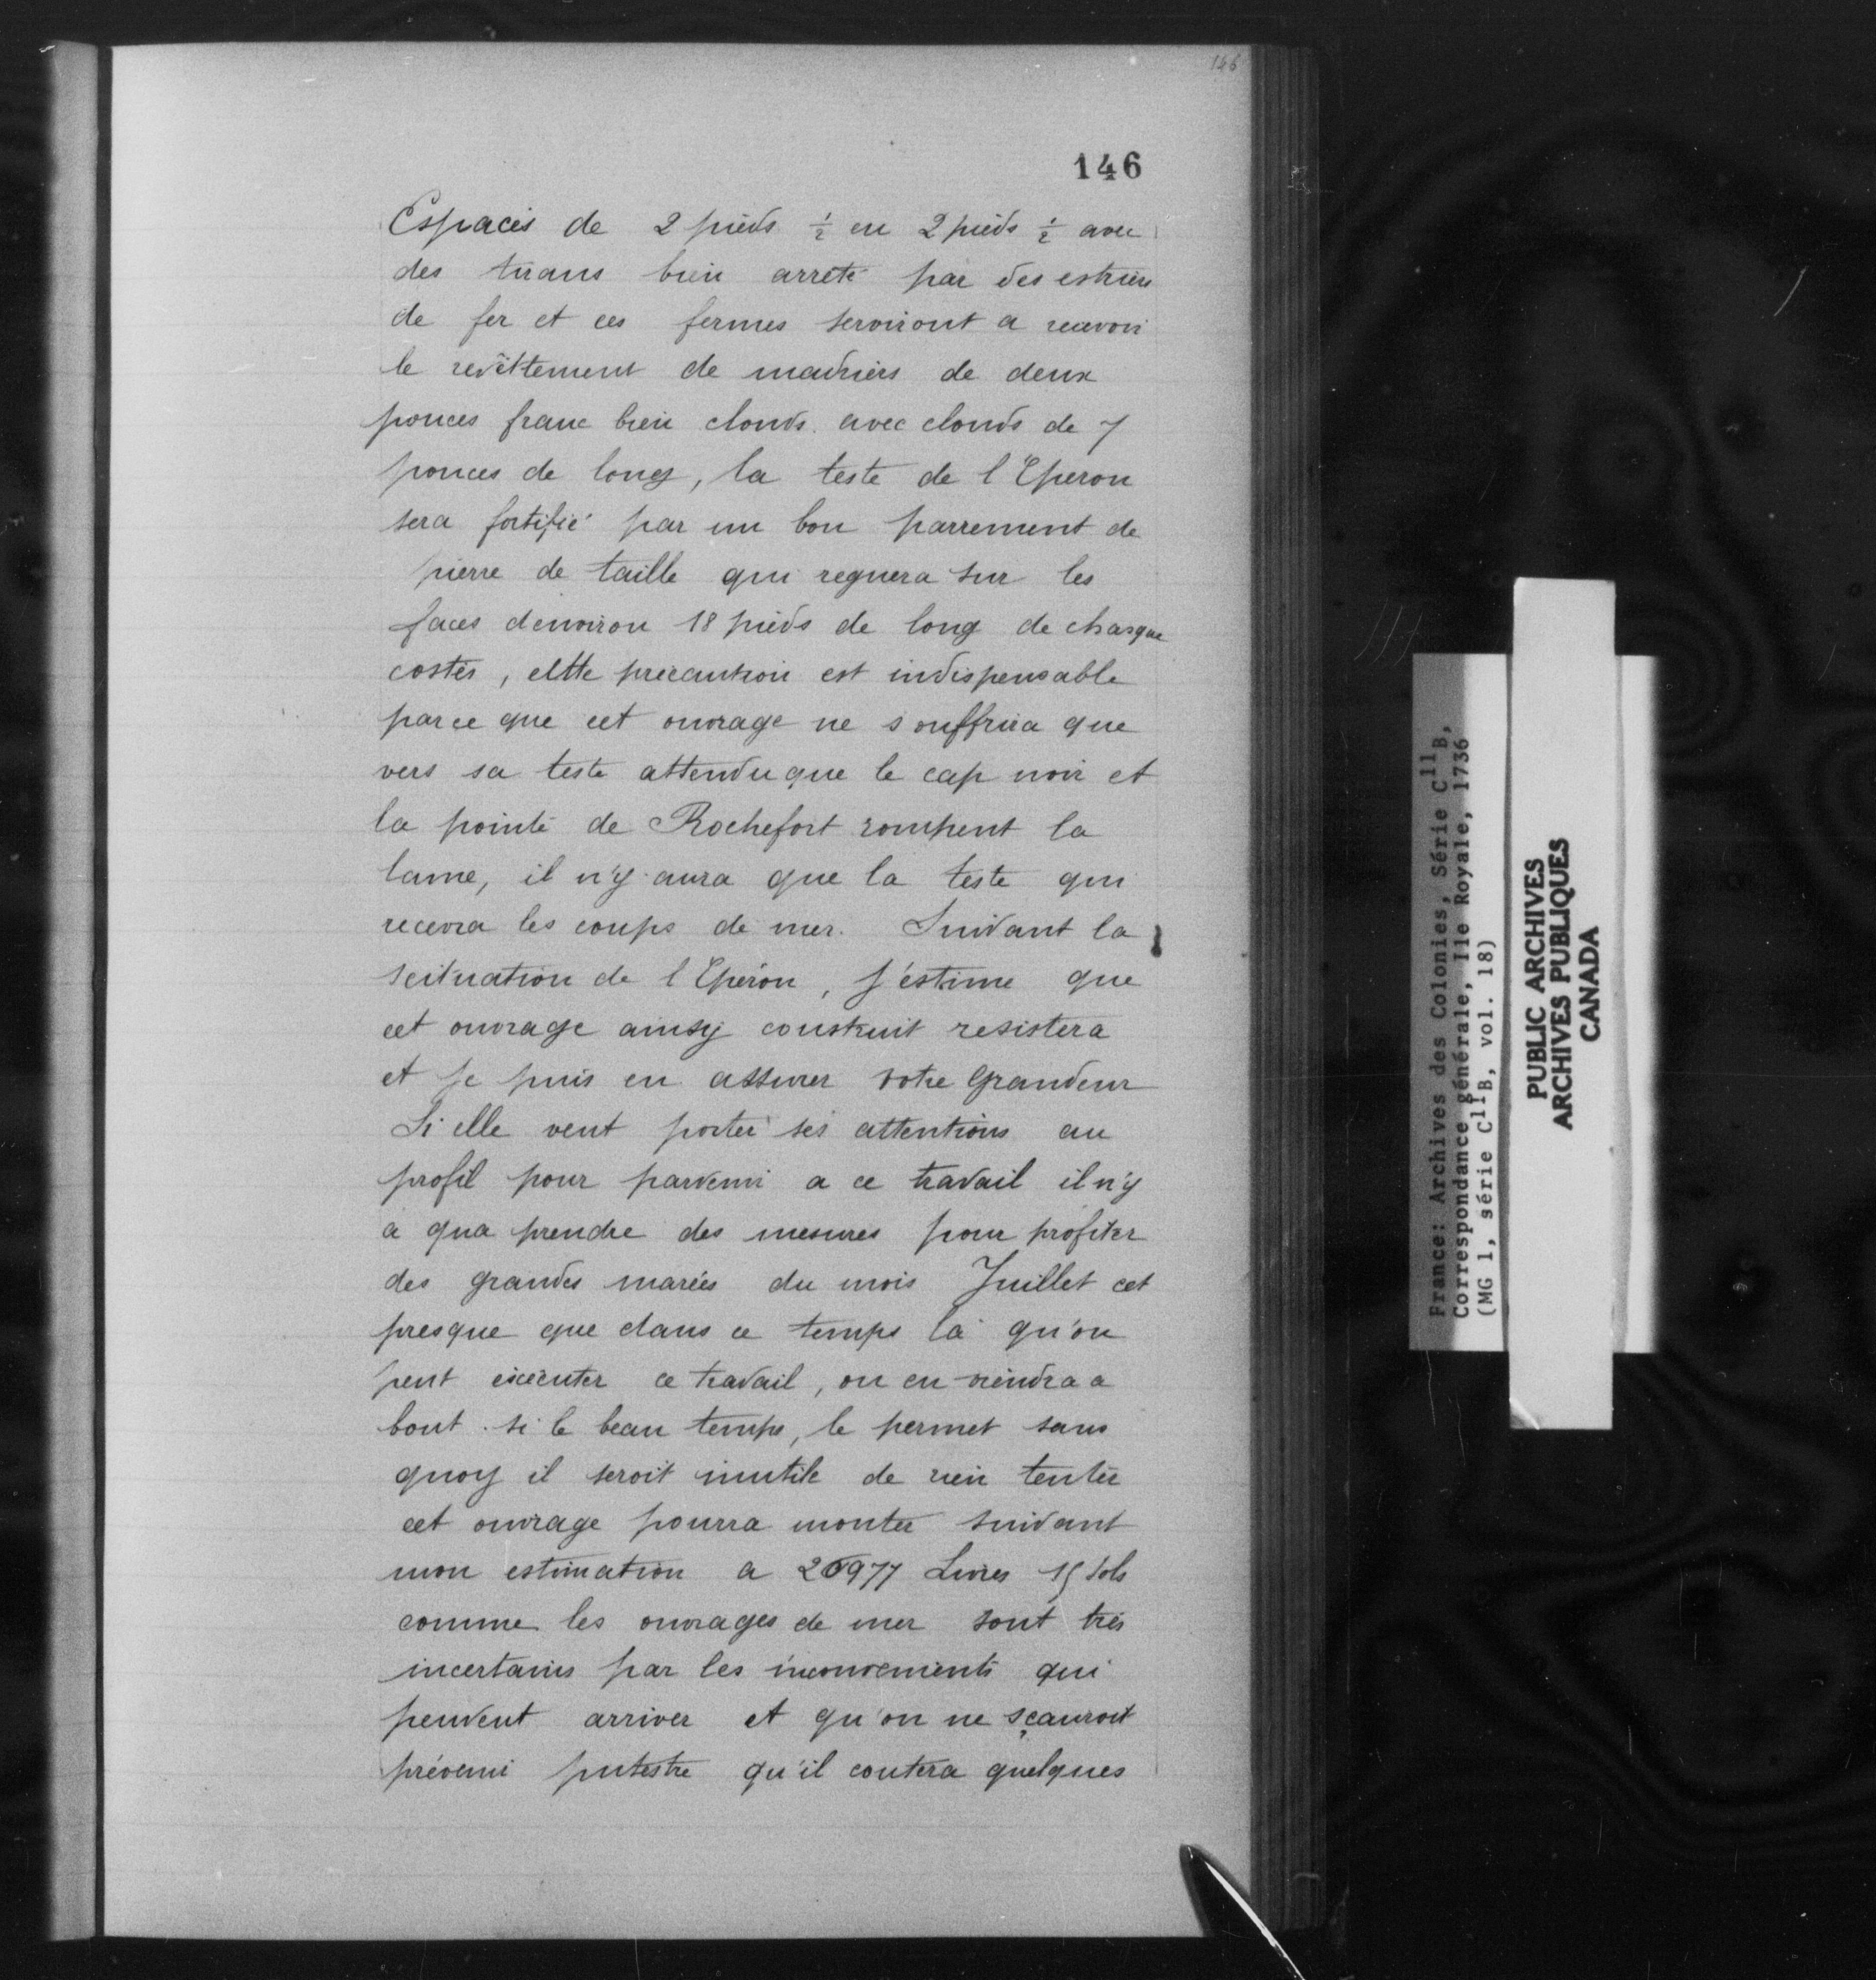 146
146
Espacés de 2 pieds ½ en 2 pieds ½ avec
des tirans bien arreté par des estriers
de fer et ces fermes serviront a recevoir
le revêttement de madriers de deux
pouces franc bien clouds avec clouds de 7
pouces de long, la teste de l'Eperon
sera fortifié par un bon parrement de
pierre de taille qui regnera sur les
faces denviron 18 pieds de long de chasque
costés, cette précaution est indispensable
parce que cet ouvrage ne souffrira que
vers sa teste attendu que le cap noir et
la pointe de Rochefort rompent la
lame, il n'y aura que la teste qui
recevra les coups de mer. Suivant la
scituation de l'Eperon, j'éstime que
cet ouvrage ainsy construit resistera
et je puis en assurer votre grandeur
Si elle veut porter ses attentions au
profil pour parvenir a ce travail il n'y
a qua prendre des mesures pour profiter
des grandes marées du mois Juillet cet
presque que dans ce temps là qu'on
peut éxécuter ce travail, on en viendra a
bout si le beau temps, le permet sans
quoy il seroit inutile de rien tenter
cet ouvrage pourra monter suivant
mon estimation a 26977 Livres 15 sols
comme les ouvrages de mer sont très
incertains par les inconvenients qui
peuvent arriver et qu'on ne sçauroit
prévenir putestre qu'il coutera quelques
France: Archives des Colonies, Série C11B,
Correspondance générale, Ile Royale, 1736
(MG 1, série C11B, vol. 18)
PUBLIC ARCHIVES
ARCHIVES PUBLIQUES
CANADA